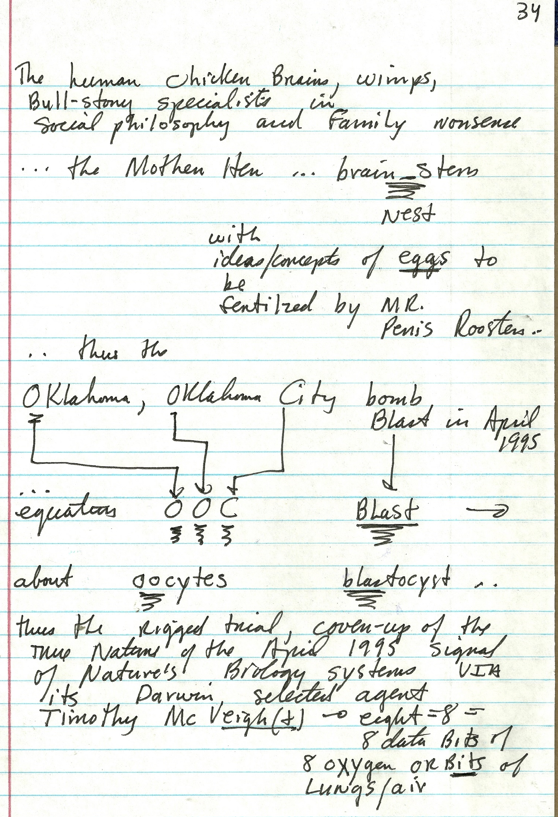 34
The human chicken Brains, wimps,
Bull-story specialists in
Social philosophy and Family nonsense
... the Mother Hen ... brain-stem
Nest
with
ideas/concepts of eggs to
be
fertilzed by MR.
Penis Rooster..
.. thus the
OKlahoma, OKlahoma City bomb
Blast in April
1995
...
equations O O C Blast →
about oocytes blastocyst ..
thus the rigged trial, cover-up of the
True Nature of the April 1995 Signal
of Nature's Biology systems VIA
its Darwin selected agent
Timothy Mc Veigh(t) → eight = 8 =
8 data Bits of
8 oxygen OR Bits of
Lungs/air